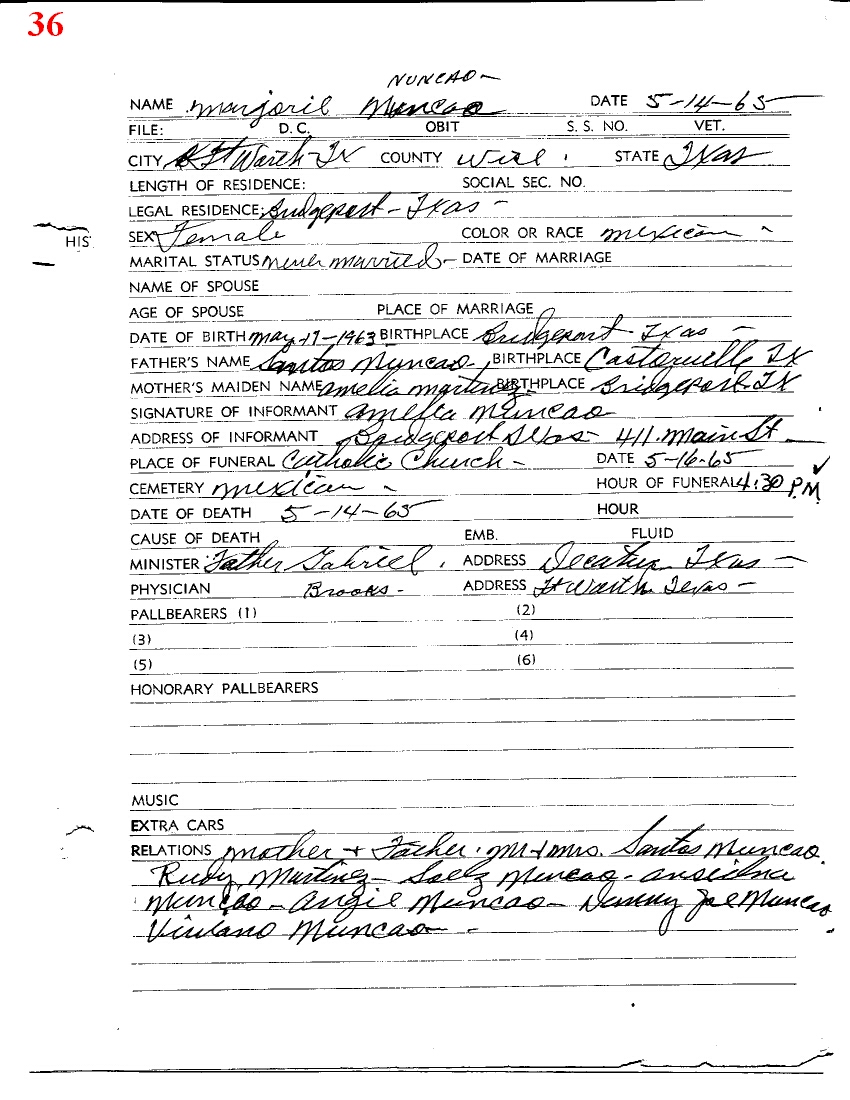 36
NUNCAO
NAME Marjorie Muncao DATE 5-14-65
FILE: D. C. OBIT S. S. NO. VET.
CITY Ft Worth-TX COUNTY Wise STATE Texas
LENGTH OF RESIDENCE: SOCIAL SEC. NO.
LEGAL RESIDENCE: Bridgeport - Texas -
HIS
SEX Female COLOR OR RACE mexican -
MARITAL STATUS never married - DATE OF MARRIAGE
NAME OF SPOUSE
AGE OF SPOUSE PLACE OF MARRIAGE
DATE OF BIRTH may-17-1963 BIRTHPLACE Bridgeport-Texas -
FATHER'S NAME Santos Nuncao, BIRTHPLACE Castorville TX
MOTHER'S MAIDEN NAME amelia martinez- BIRTHPLACE Bridgeport-TX
SIGNATURE OF INFORMANT amelia Muncao
ADDRESS OF INFORMANT Bridgeport Texas- 411. Main St
PLACE OF FUNERAL Catholic Church - DATE 5-16-65
CEMETERY mexican - HOUR OF FUNERAL 4:30 P.M.
DATE OF DEATH 5-14-65 HOUR
CAUSE OF DEATH EMB. FLUID
MINISTER Father Gabriel. ADDRESS Decatur Texas -
PHYSICIAN Brooks- ADDRESS Ft Worth Texas -
PALLBEARERS (1) (2)
(3) (4)
(5) (6)
HONORARY PALLBEARERS
MUSIC
EXTRA CARS
RELATIONS mother + Father. Mr + Mrs. Santos Muncao.
Rudy Martinez- Muncao-
Muncao- Angie Muncao- Danny Joe Muncao
Muncao- -